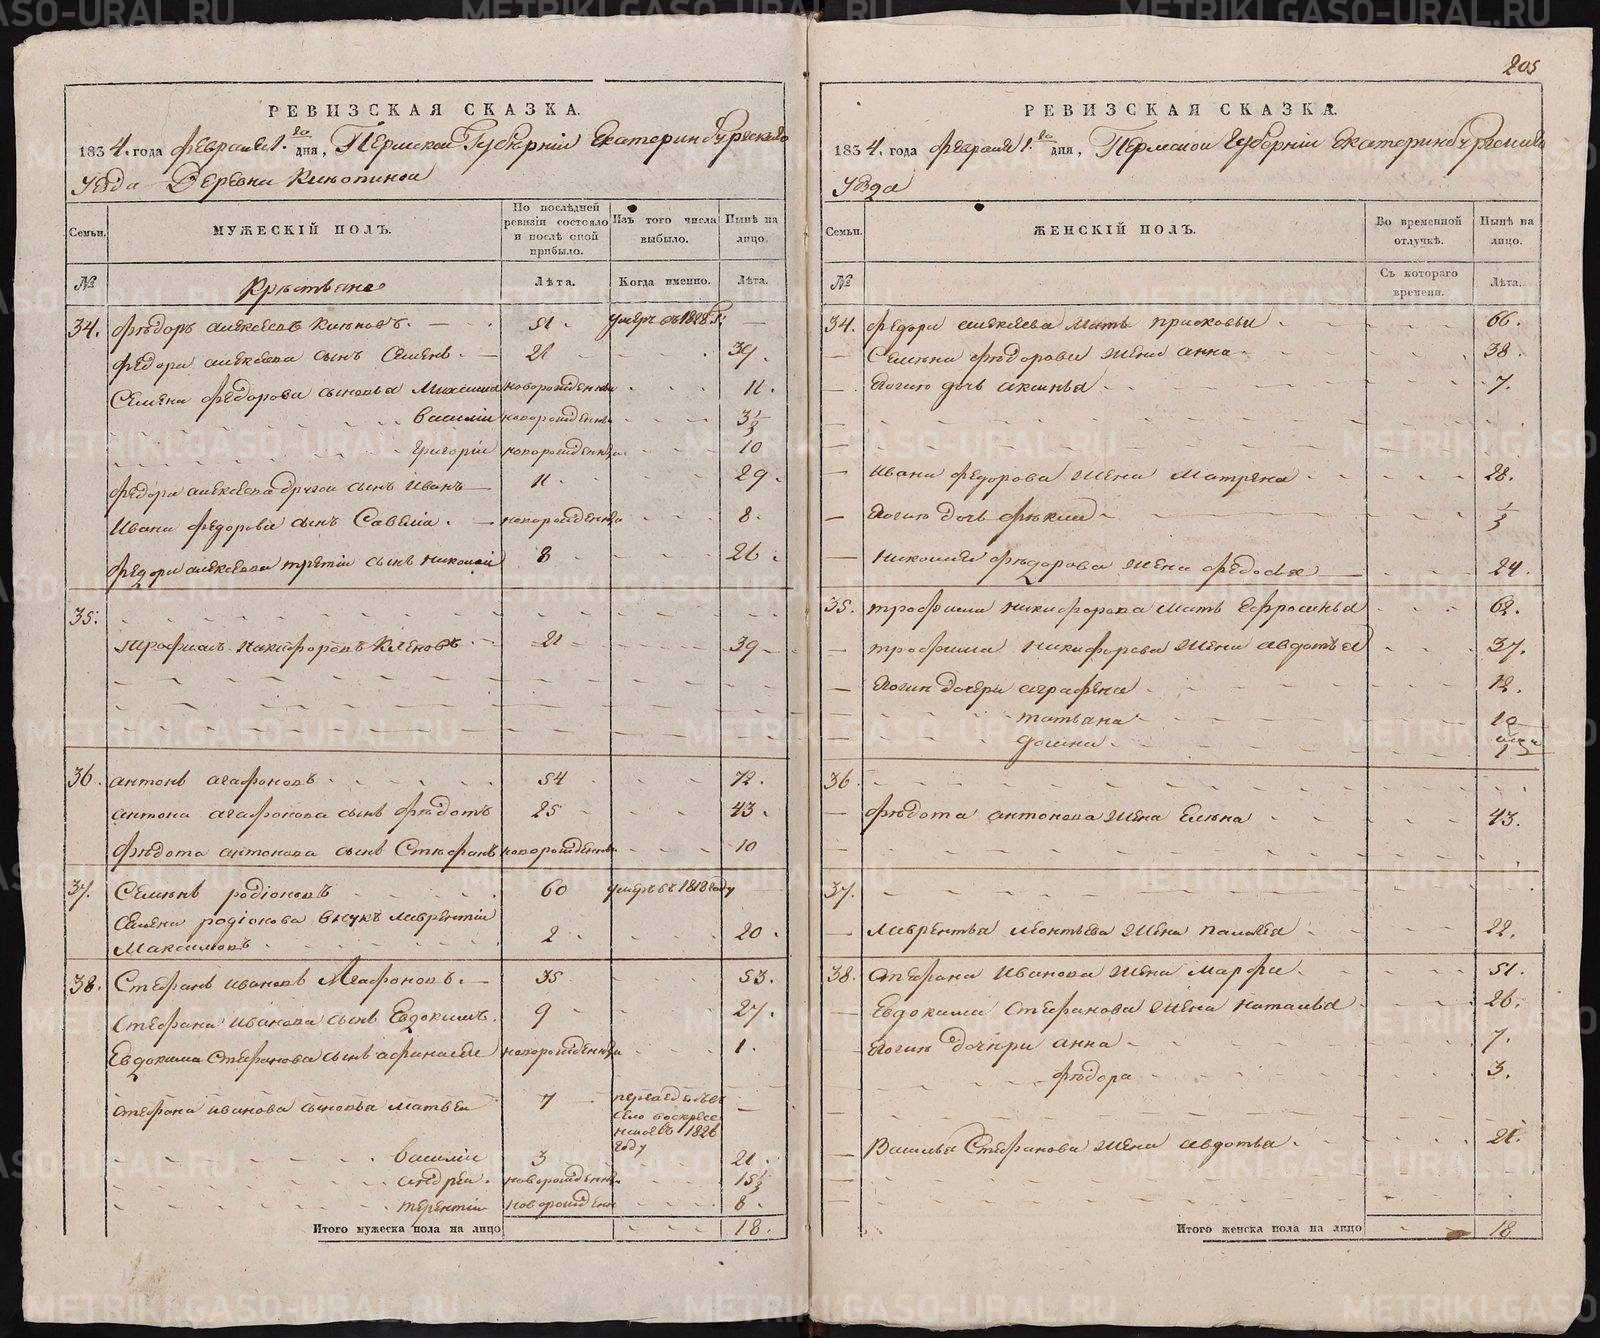 205
РЕВИЗСКАЯ СКАЗКА.
1834. года февраля 1.го дня, Пермской Губерніи Екатеринбургскаго
Уезда Деревни
Семьи. МУЖЕСКІЙ ПОЛЪ. По послѣдней ревизіи состояло и послѣ оной прибыло. Изъ того числа выбыло. Нынѣ на лицо.
№ Крестьяне Лѣта. Когда именно. Лѣта.
34. Федоръ алексеевъ 51. умеръ въ 1828 г: —
Федора алексеева сынъ Семенъ. — 21 39.
Семена федорова сыновья новорожденны 11.
василіи новорожденны 3 1/3
григоріи новорожденны 10
федора алексеева другой сынъ Иванъ — 11 29.
Ивана федорова сынъ Савелиа. — новорожденны 8.
федора алексеева третіи сынъ николаи 8 26.
35.
Трофимъ никифоровъ 21 39
36. антонъ агафоновъ 54 72.
антона агафонова сынъ федотъ 25 43.
федота антонова сынъ новорожденны 10
37. Семенъ родіоновъ 60 умеръ въ 1818 году
Семена родіонова внукъ лаврентіи
Максимовъ 2 20.
38. Стефанъ ивановъ Агафоновъ. — 35 53.
стефана иванова сынъ Евдокимъ. 9 27.
Евдокима Стефанова сынъ афанасеи новорожденны 1.
стефана иванова сыновья матвеи 7 —
село воскресе
1826
году
василіи 3 21.
андреи. новорожденны 15 1/3
терентіи новорожден 8.
Итого мужеска пола на лицо 18.
РЕВИЗСКАЯ СКАЗКА.
1834. года февраля 1.го дня, Пермской Губерніи Екатеринбургскаго
Уѣзда
Семьи. ЖЕНСКІЙ ПОЛЪ. Во временной отлучкѣ. Нынѣ на лицо.
№ Съ котораго времени. Лѣта.
34. федора алексеева мать прасковья 66.
— Семена федорова жена анна 38.
— Ясоѣю дочь аксинья 7.
— ивана федорова жена матрена 28.
— дочь 1/3
— николаея федорова жена федосья 24.
35. трофима никифорова мать Ефросинья 62.
— трофима никифорова жена авдотья 37.
— дочери аграфена 12.
татьяна 10
36
— федота антонова жена Елена 43.
37.
— лаврентья леонтьева жена 22.
38. стефана иванова жена марфа 51.
— Евдокима стефанова жена наталья 26.
— дочери анна 7.
федора 3.
— василья Стефанова жена авдотья 21.
Итого женска пола на лицо 18
METRIKI.GASO-URAL.RU